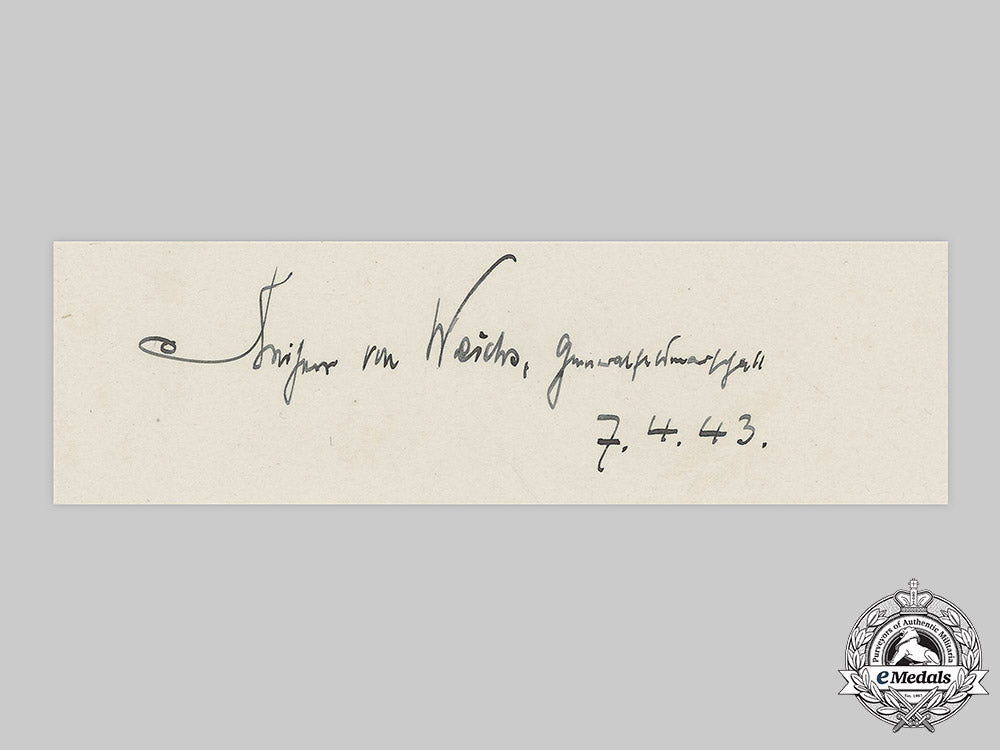 Freiherr von Weichs, Generalfeldmarschall
7. 4. 43.
Purveyors of Authentic Militaria
eMedals
Est. 1967